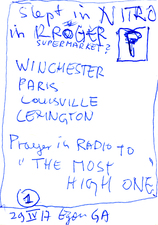 slept in NITRO
in KROGER
SUPERMARKET?
WINCHESTER
PARIS
LOUISVILLE
LEXINGTON
Prayer in RADIO TO
"THE MOST
HIGH ONE
1
29 IV 17 Egon GA